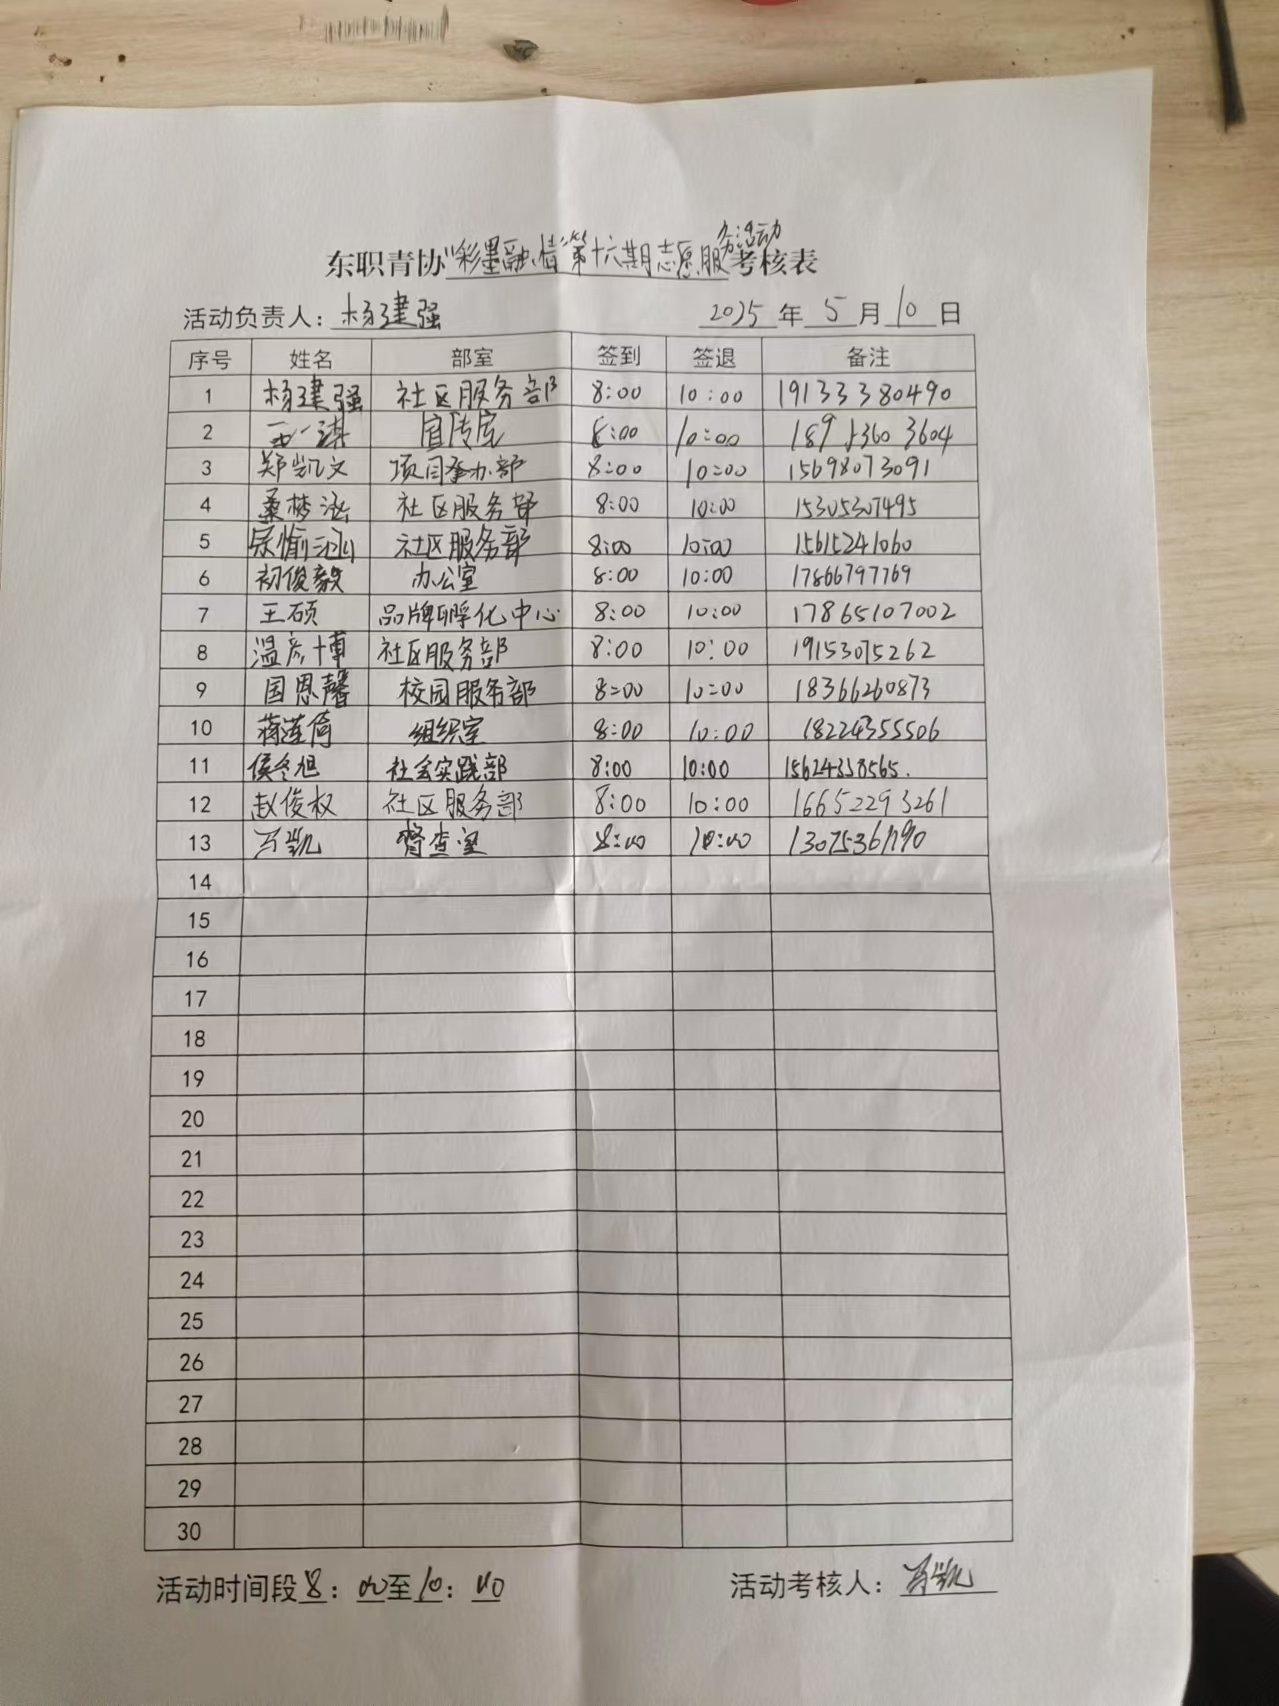 东职青协“彩墨融情”第十六期志愿服务活动考核表
活动负责人：杨建强 2025年5月10日
序号 姓名 部室 签到 签退 备注
1 杨建强 社区服务部 8:00 10:00 19133380490
2 宣传室 8:00 10:00 3604
3 郑凯文 项目承办部 8:00 10:00 15698073091
4 桑梦涵 社区服务部 8:00 10:00 15305307495
5 社区服务部 8:00 10:00 15615241060
6 初俊毅 办公室 8:00 10:00 17866797769
7 王硕 品牌孵化中心 8:00 10:00 17865107002
8 温彦博 社区服务部 8:00 10:00 19153075262
9 国恩馨 校园服务部 8:00 10:00 18366260873
10 蒋莲倚 组织室 8:00 10:00 18224355506
11 侯冬旭 社会实践部 8:00 10:00 15624338565.
12 赵俊权 社区服务部 8:00 10:00 16652293261
13 万凯 督查室 8:00 10:00
14
15
16
17
18
19
20
21
22
23
24
25
26
27
28
29
30
活动时间段8：00至10：00 活动考核人：万凯